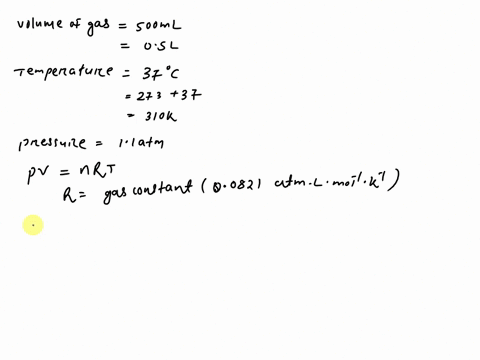 volume of gas = 500mL
= 0.5L
Temperature = 37°C
= 273 + 37
= 310K
pressure = 1.1atm
PV = nRT
R = gas constant (0.0821 atm.L.mol⁻¹.K⁻¹)